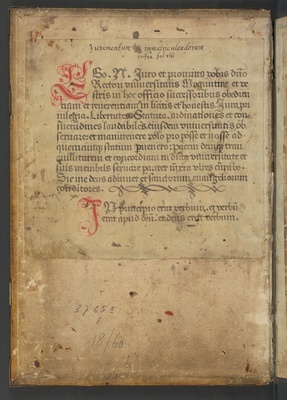 Juramentum immatriculandorum
EGo .N. Juro et promitto vobis dño
Rectori vniuersitatis Moguntine et ve
stris in hoc officio successoribus obedien
tiam et reuerentiam in licitis et honestis. Jura pri
uilegia. Libertates. Statuta. ordinationes et con
suetudines laudabiles eiusdem vniuersitatis ob
seruare: et manutenere pro posse et nosse ad
quemcumqȝ statum
quillitatem et concordiam in dicta vniuersitate et
suis membris seruare
Sic me deus adiuuet et sanctorum euangeliorum
conditores.
IN principio erat verbum. et verbū
erat apud deū. et deus erat verbum.
18/60